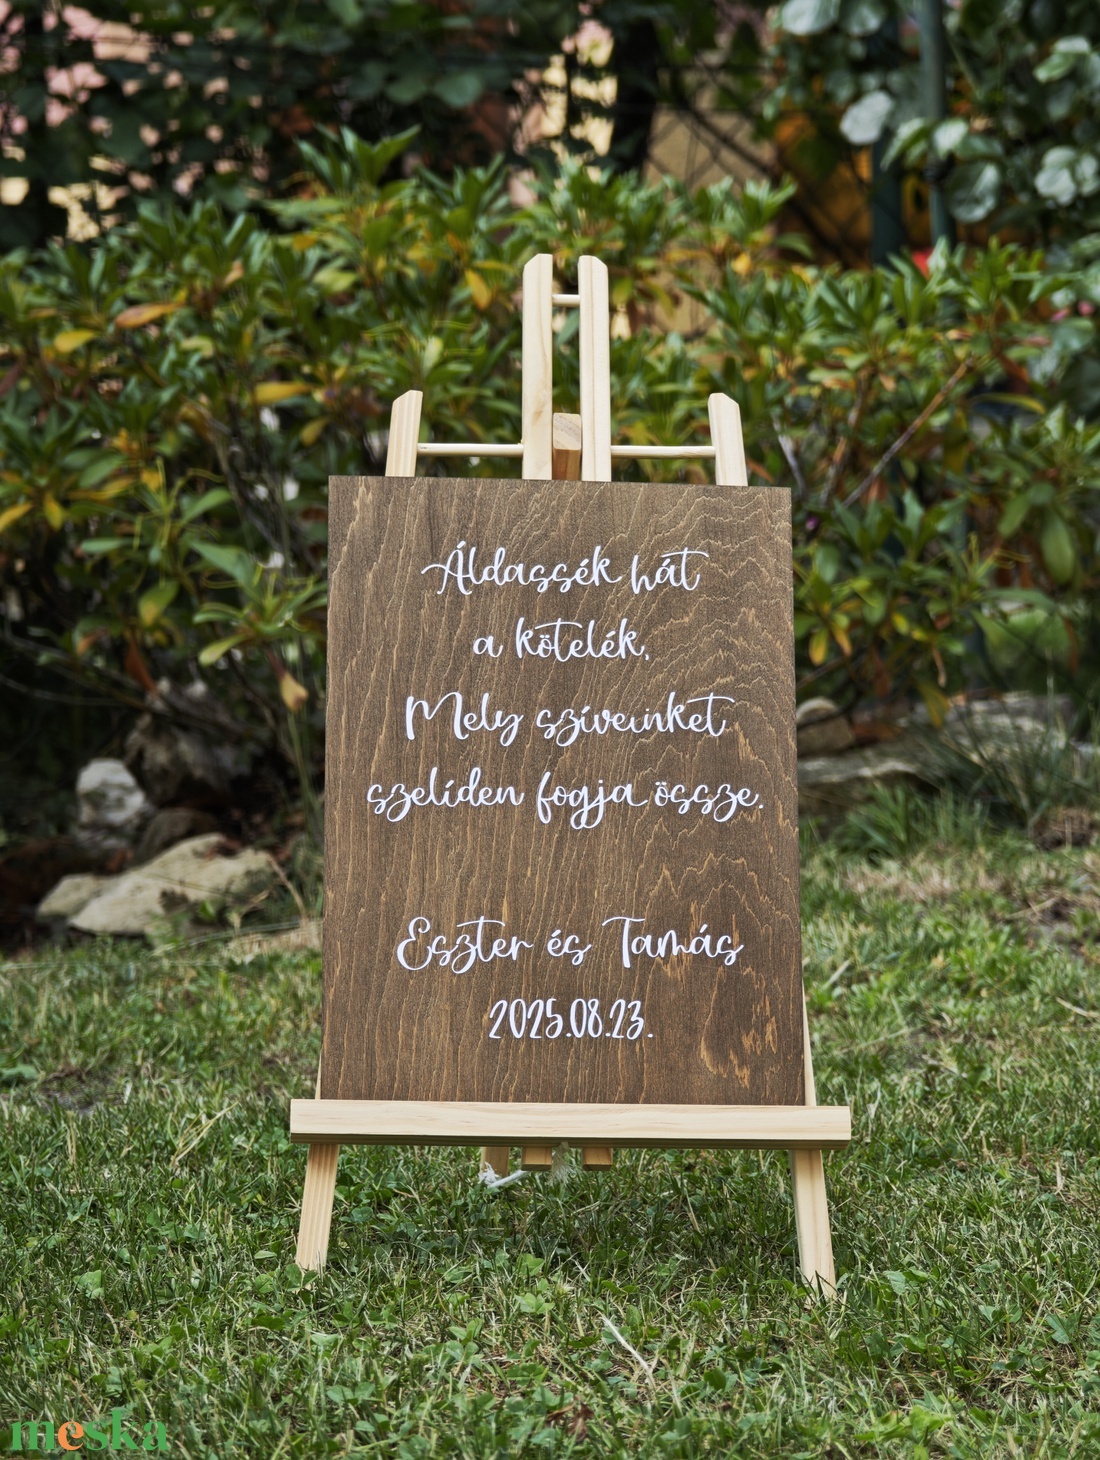 Áldassék hát
a kötelék,
Mely szíveinket
szelíden fogja össze.
Eszter és Tamás
2025.08.23.
meska